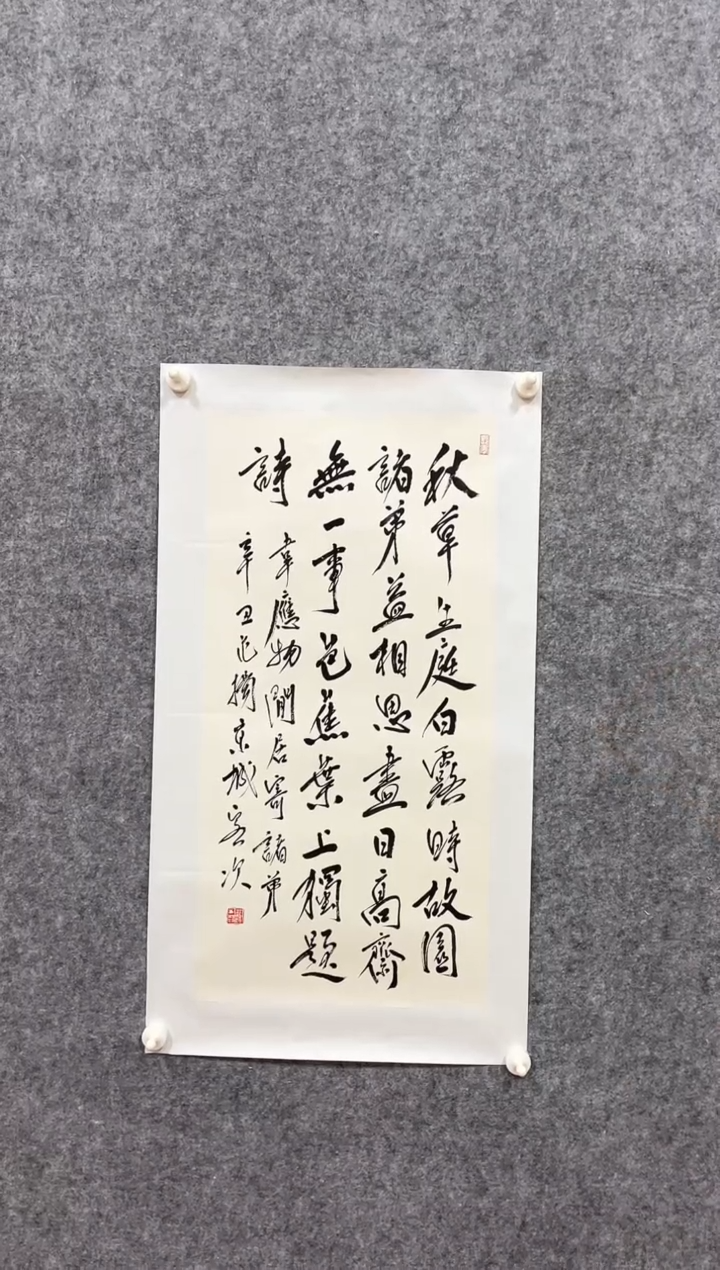 秋草生庭白露時故園
諸弟益相思盡日高齋
無一事芭蕉葉上獨題
詩
韋應物閒居寄諸弟
辛丑 京城客次